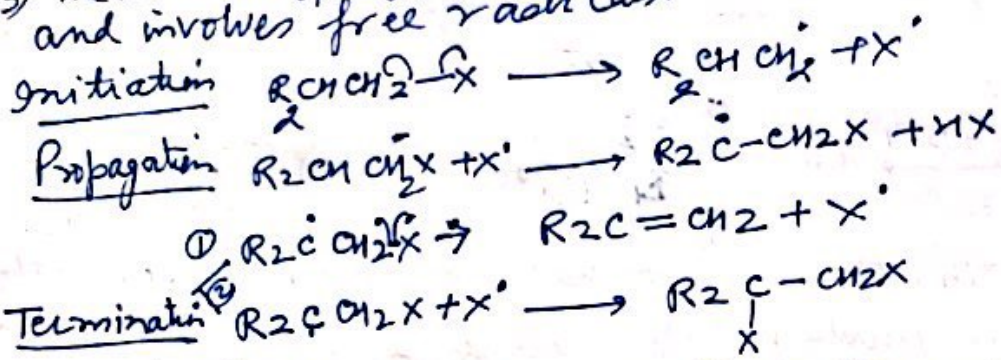 and involves free
Initiation R2CHCH2–X ⟶ R2CHCH2• + X•
Propagation R2CH CH2X + X• ⟶ R2Ċ–CH2X + HX
① R2Ċ CH2X → R2C=CH2 + X•
Termination ② R2Ċ CH2X + X• ⟶ R2C–CH2X
X